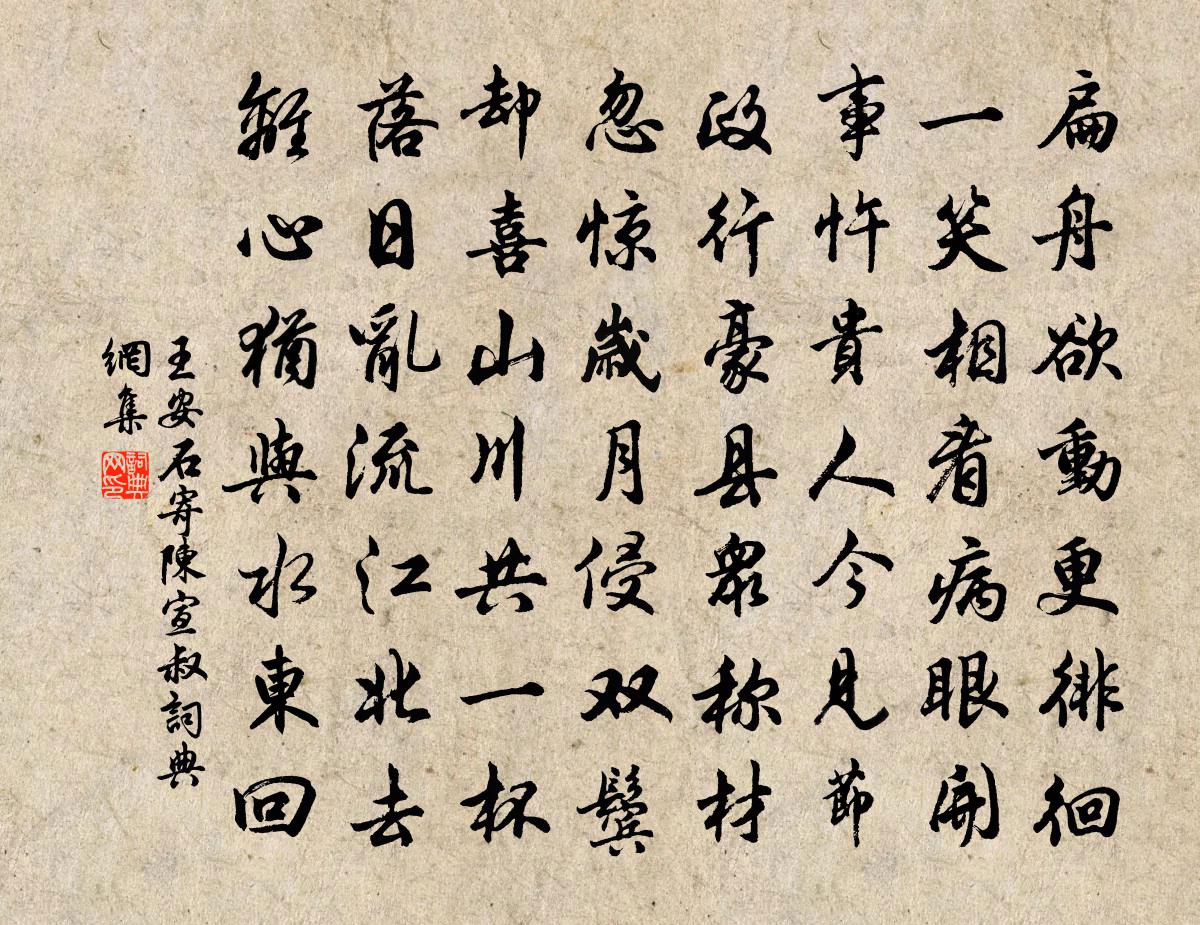 扁舟欲動更徘徊
一笑相看病眼開
事忤貴人今見節
政行豪县衆称材
忽惊歲月侵双鬓
却喜山川共一杯
落日亂流江北去
離心猶與水東回
王安石寄陳宣叔詞典
網集
詞典網印